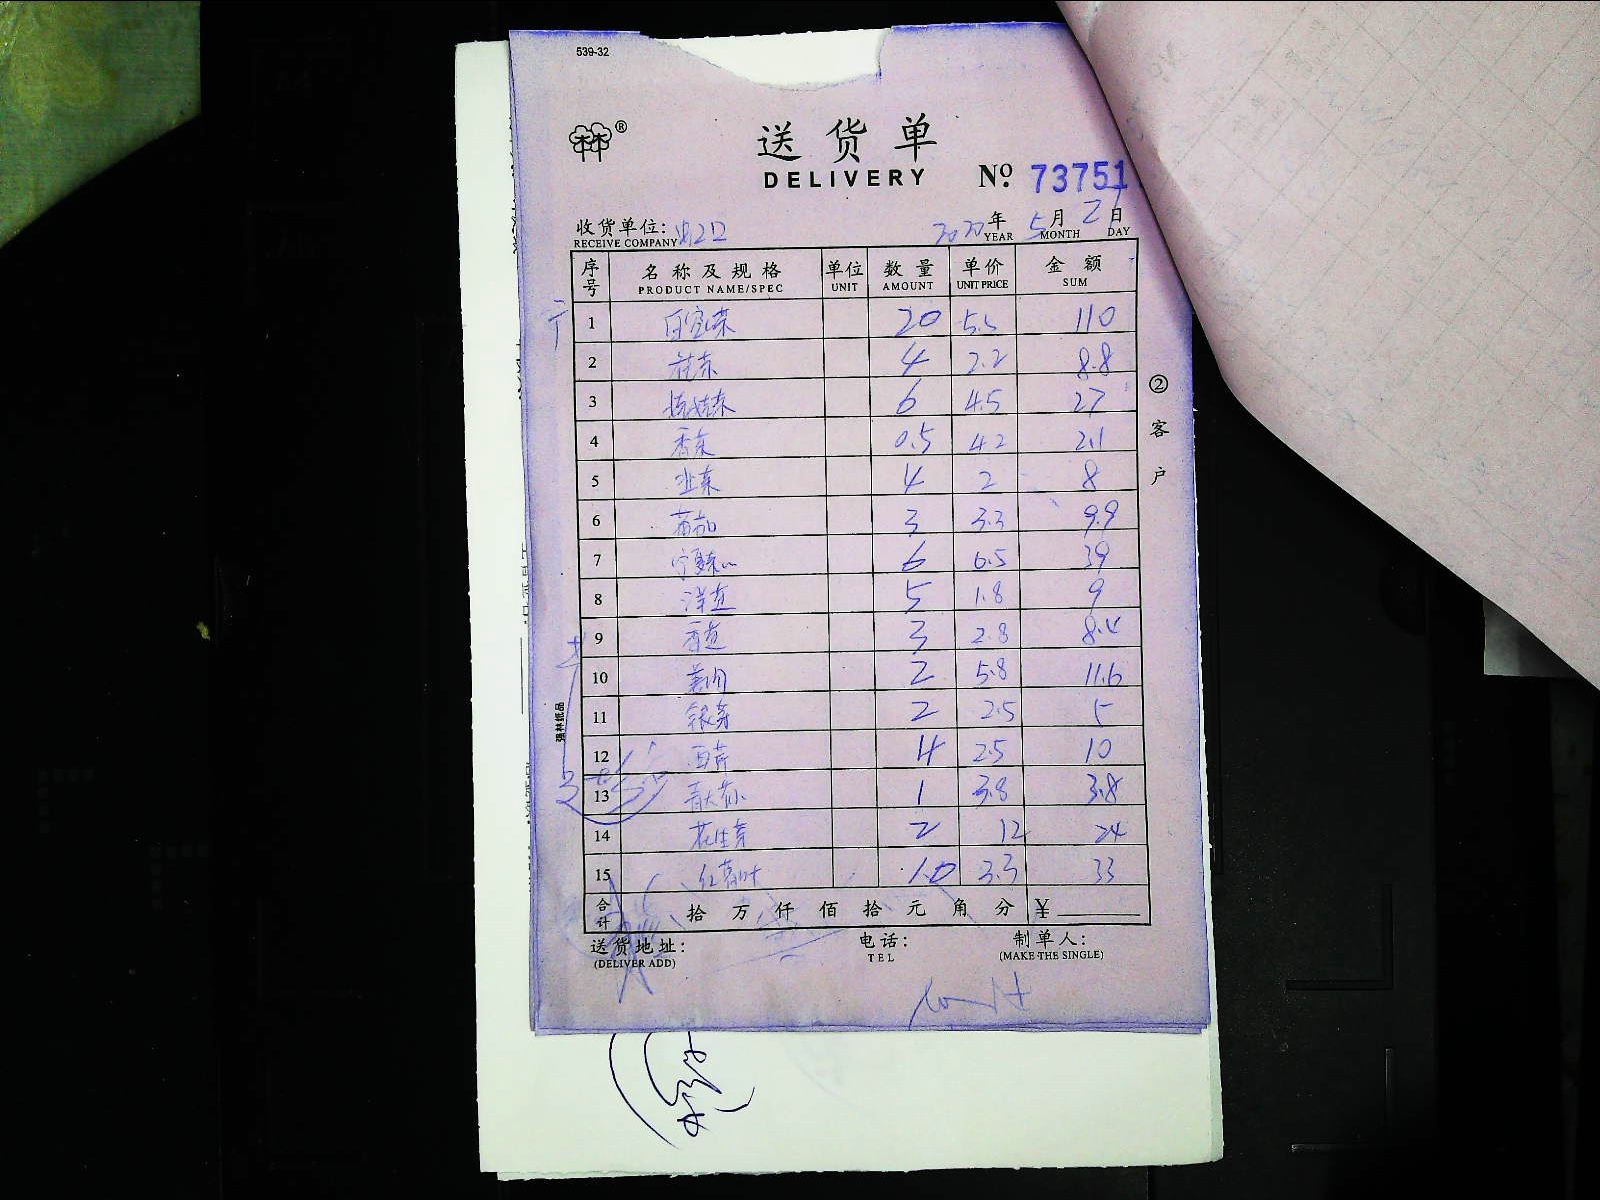 539-32
林®
送货单
DELIVERY
Nº 73751
收货单位: 出2口
RECEIVE COMPANY
2022年 5月 21日
YEAR MONTH DAY
序号 名称及规格 单位 数量 单价 金额
PRODUCT NAME/SPEC UNIT AMOUNT UNIT PRICE SUM
1 20 5.5 110
2 4 2.2 8.8
3 6 4.5 27
4 香菜 0.5 4.2 2.1
5 4 2 8
6 番茄 3 3.3 9.9
7 宁夏菜心 6 6.5 39
8 洋葱 5 1.8 9
9 香葱 3 2.8 8.4
10 姜肉 2 5.8 11.6
11 银芽 2 2.5 5
12 西芹 4 2.5 10
13 1 3.8 3.8
14 花生芽 2 12 24
15 红薯叶 10 3.3 33
合计 拾 万 仟 佰 拾 元 角 分 ¥
送货地址: 电话: 制单人:
(DELIVER ADD) TEL (MAKE THE SINGLE)
②客户
强林纸品